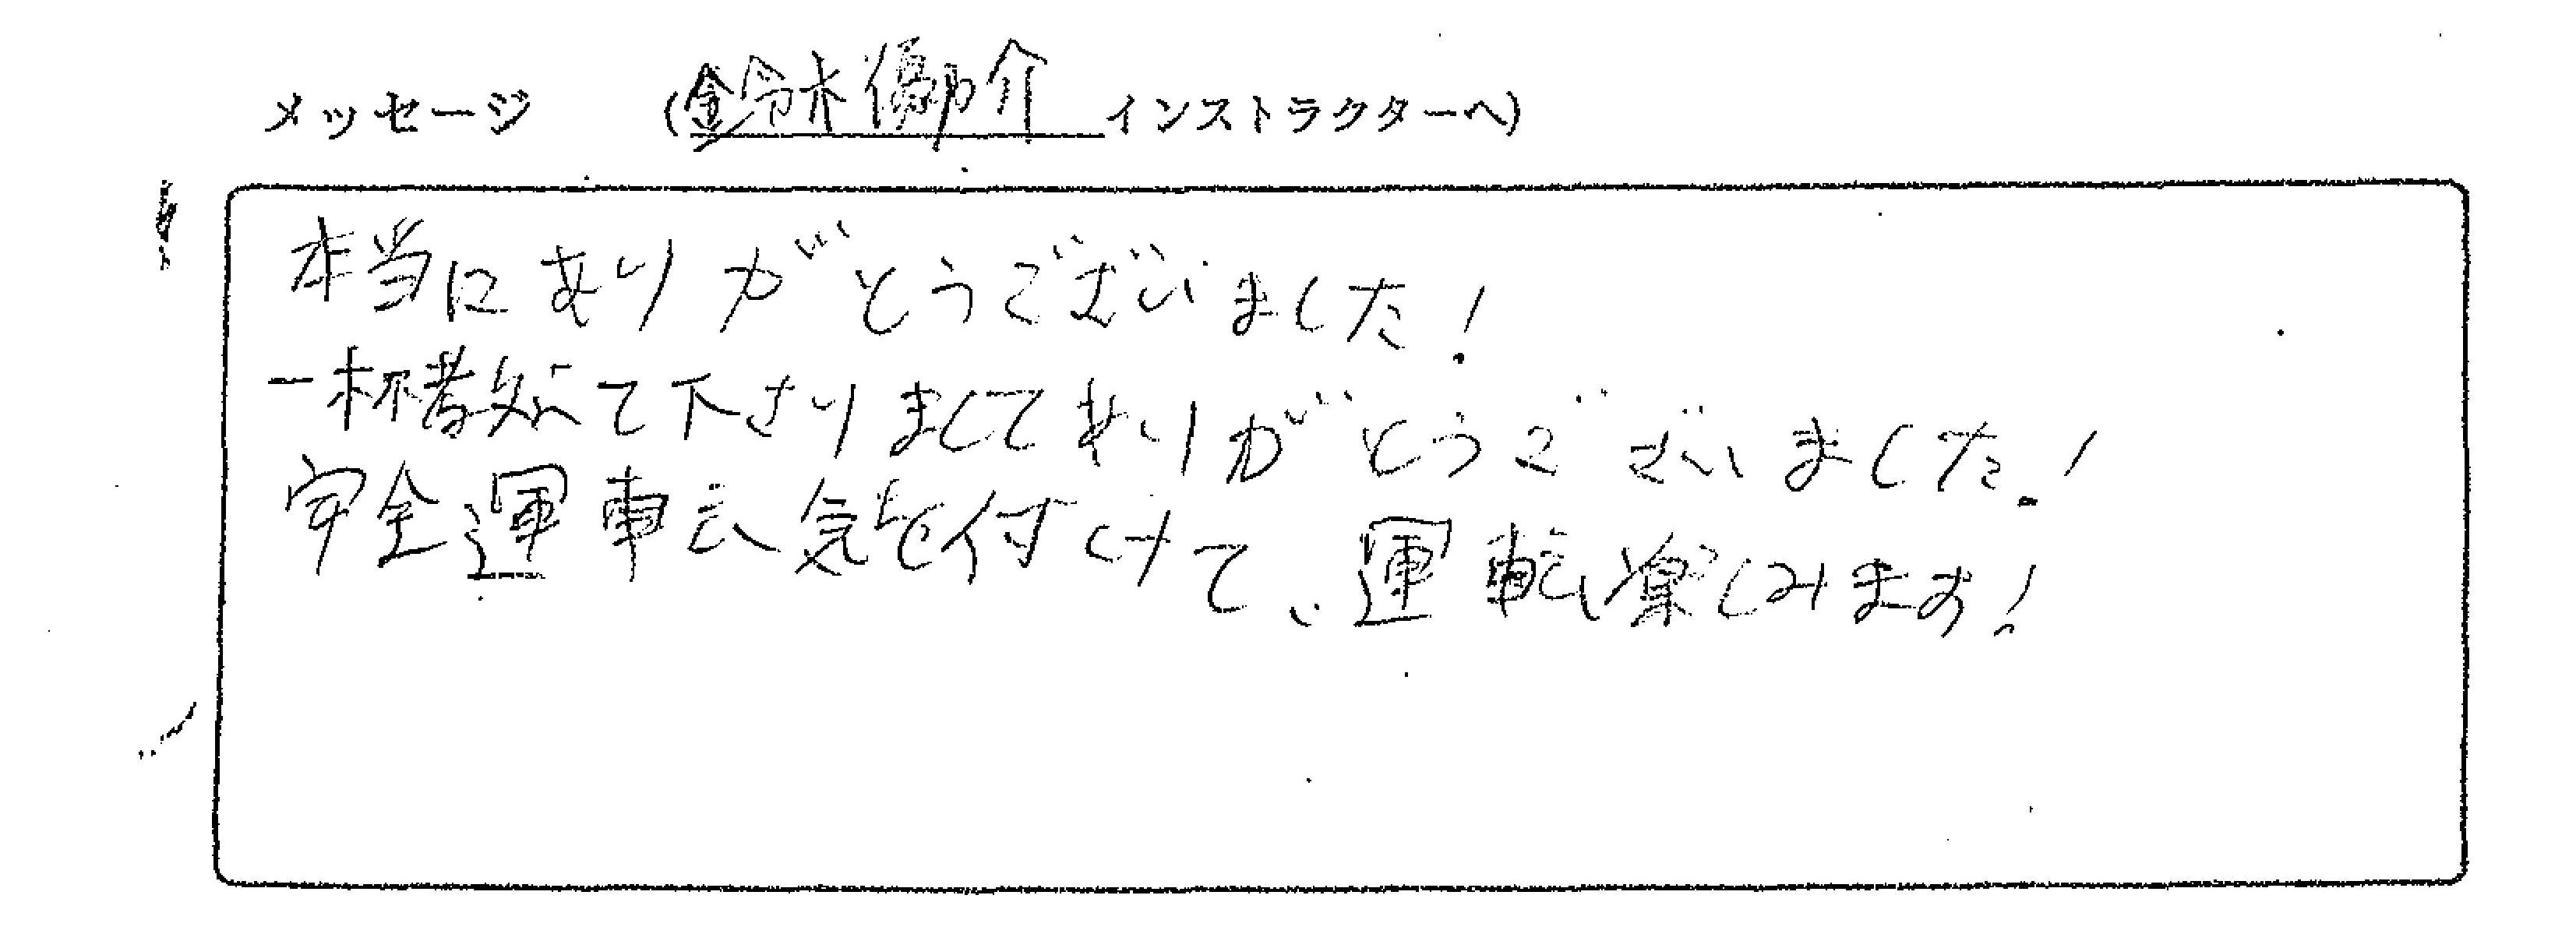 メッセージ (鈴木 介 インストラクターへ)
本当にありがとうございました!
一杯教えて下さりましてありがとうございました!
安全運転に気を付けて、運転楽しみます!